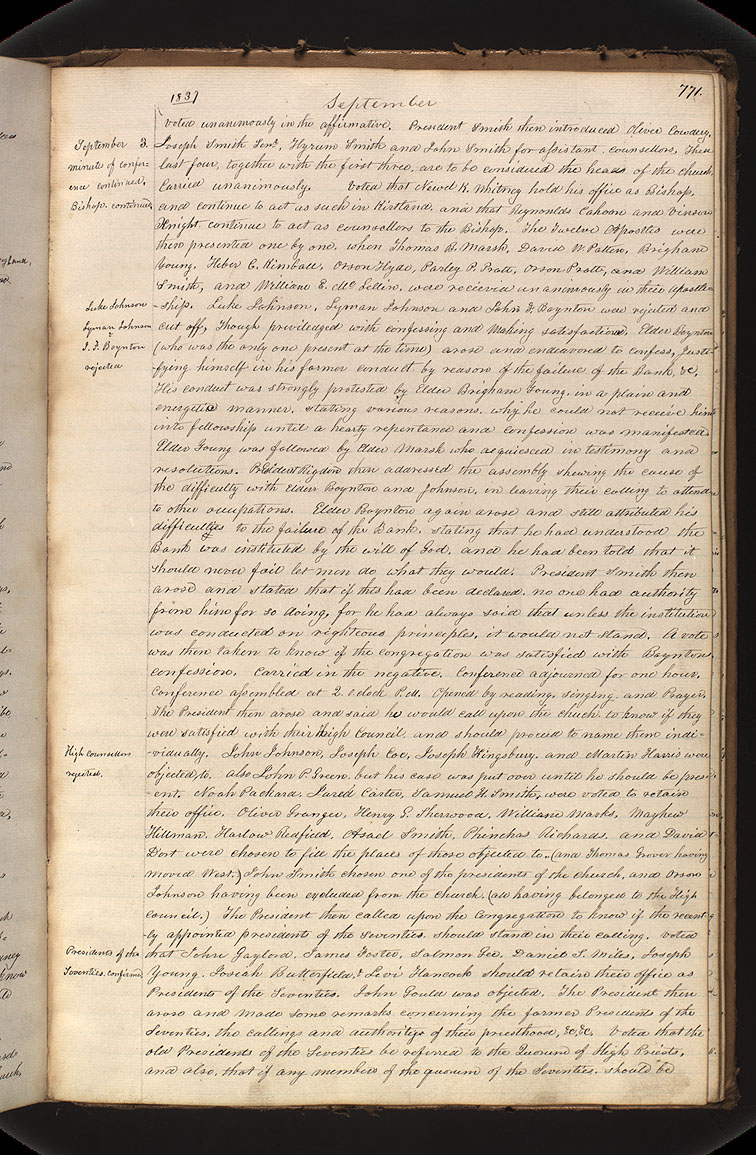 1837 September 771.
voted unanimously in the affirmative. President Smith then introduced Oliver Cowdery,
September 3. Joseph Smith Senr, Hyrum Smith and John Smith for assistant counsellors, These
minute of confer- last four, together with the first three, are to be considered the heads of the church,
ence continued. Carried unanimously. Voted that Newel K. Whitney hold his office as Bishop.
Bishop. continued, and continue to act as such in Kirtland, and that Reynolds Cahoon and Vinson
Knight continue to act as counsellors to the Bishop. The Twelve Apostles were
then presented one by one, when Thomas B. Marsh, David W. Patten, Brigham
Young, Heber C. Kimball, Orson Hyde, Parley P. Pratt, Orson Pratt, and William
Smith, and William E. Mc Lellin, were received unanimously in their Apostle-
Luke Johnson -ship. Luke Johnson, Lyman Johnson and John F. Boynton were rejected and
Lyman Johnson cut off, though priviledged with confessing and making satisfaction. Elder Boynton
J. F. Boynton (who was the only one present at the time) arose and endeavored to confess, Justi-
rejected fying himself in his former conduct by reason of the failure of the Bank, &c.
His conduct was strongly protested by Elder Brigham Young, in a plain and
energetic manner, stating various reasons, why he could not receive him
into fellowship until a hearty repentance and confession was manifested.
Elder Young was followed by Elder Marsh who acquiesced in testimony and
resolutions. President Rigdon then addressed the assembly shewing the cause of
the difficulty with Elders Boynton and Johnson, in leaving their calling to attend
to other occupations. Elder Boynton again arose and still attributed his
difficulties to the failure of the Bank, stating that he had understood the
Bank was instituted by the will of God, and he had been told that it
should never fail let men do what they would. President Smith then
arose and stated that if this had been declared, no one had authority
from him for so doing, for he had always said that unless the institution
was conducted on righteous principles, it would not stand. A vote
was then taken to know if the congregation was satisfied with Boynton's
confession. Carried in the negative. Conference adjourned for one hour.
Conference assembled at 2 oclock P.M. Opened by reading, singing, and Prayer.
The President then arose and said he would call upon the church to know if they
were satisfied with their High Council, and should proceed to name them indi-
High Counsellors -vidually. John Johnson, Joseph Coe, Joseph Kingsbury, and Martin Harris were
rejected. objected to, also John P. Green, but his case was put over until he should be pres-
-ent. Noah Packard, Jared Carter, Samuel H. Smith, were voted to retain
their office. Oliver Granger, Henry G. Sherwood, William Marks, Mayhew
Hillman, Harlow Redfield, Asael Smith, Phinehas Richards, and David
Dort were chosen to fill the places of those objected to, (and Thomas Grover having
moved West,) John Smith chosen one of the presidents of the church, and Orson
Johnson having been excluded from the church, (all having belonged to the High
Council.) The President then called upon the Congregation to know if the recent-
ly appointed presidents of the Seventies should stand in their calling. Voted
Presidents of the that John Gaylord, James Foster, Salmon Gee, Daniel S. Miles, Joseph
Seventies. confirmed Young, Josiah Butterfield, & Levi Hancock should retain their office as
Presidents of the Seventies. John Gould was objected. The President then
arose and made some remarks concerning the former Presidents of the
Seventies, the callings and authorities of their priesthood, &c. &c. Voted that the
old Presidents of the Seventies be referred to the Quorum of High Priests,
and also, that if any members of the quorum of the Seventies should be